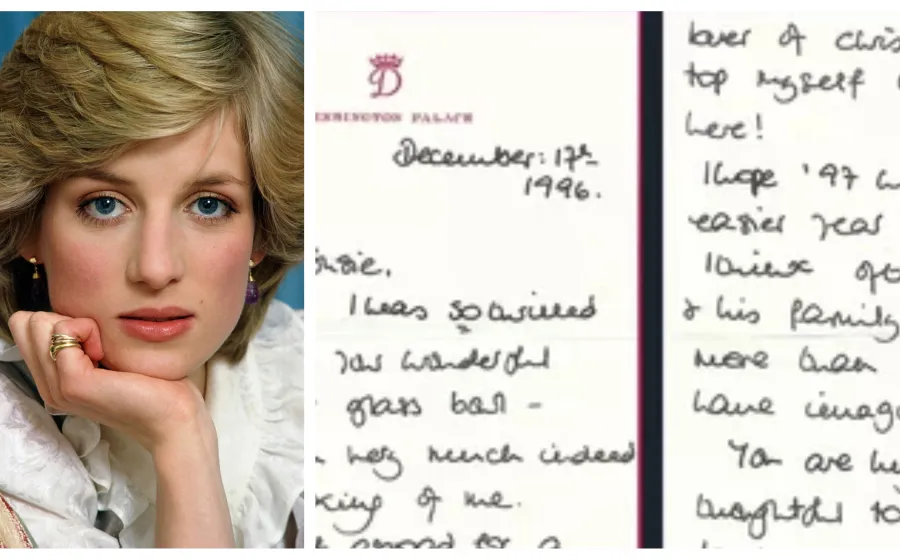 D
KENSINGTON PALACE
December: 17th
1996.
Susie,
I was so thrilled
your wonderful
glass ball -
very much indeed
king of me.
abroad for a
lover of chris
top myself
here!
I hope '97 w
easier year
I think ofte
& his family
more than
have imag
You are
thoughtful to